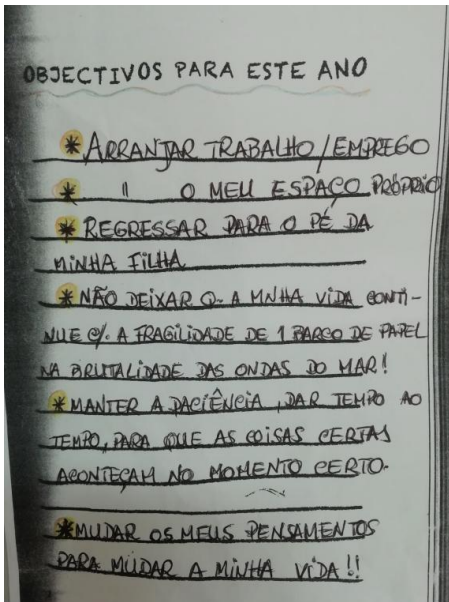 OBJECTIVOS PARA ESTE ANO
* ARRANJAR TRABALHO/EMPREGO
* " O MEU ESPAÇO PRÓPRIO
* REGRESSAR PARA O PÉ DA
MINHA FILHA
* NÃO DEIXAR Q. A MNHA VIDA CONTI-
NUE C/. A FRAGILIDADE DE 1 BARCO DE PAPEL
NA BRUTALIDADE DAS ONDAS DO MAR!
* MANTER A PACIÊNCIA, DAR TEMPO AO
TEMPO, PARA QUE AS COISAS CERTAS
ACONTEÇAM NO MOMENTO CERTO.
* MUDAR OS MEUS PENSAMENTOS
PARA MUDAR A MINHA VIDA!!